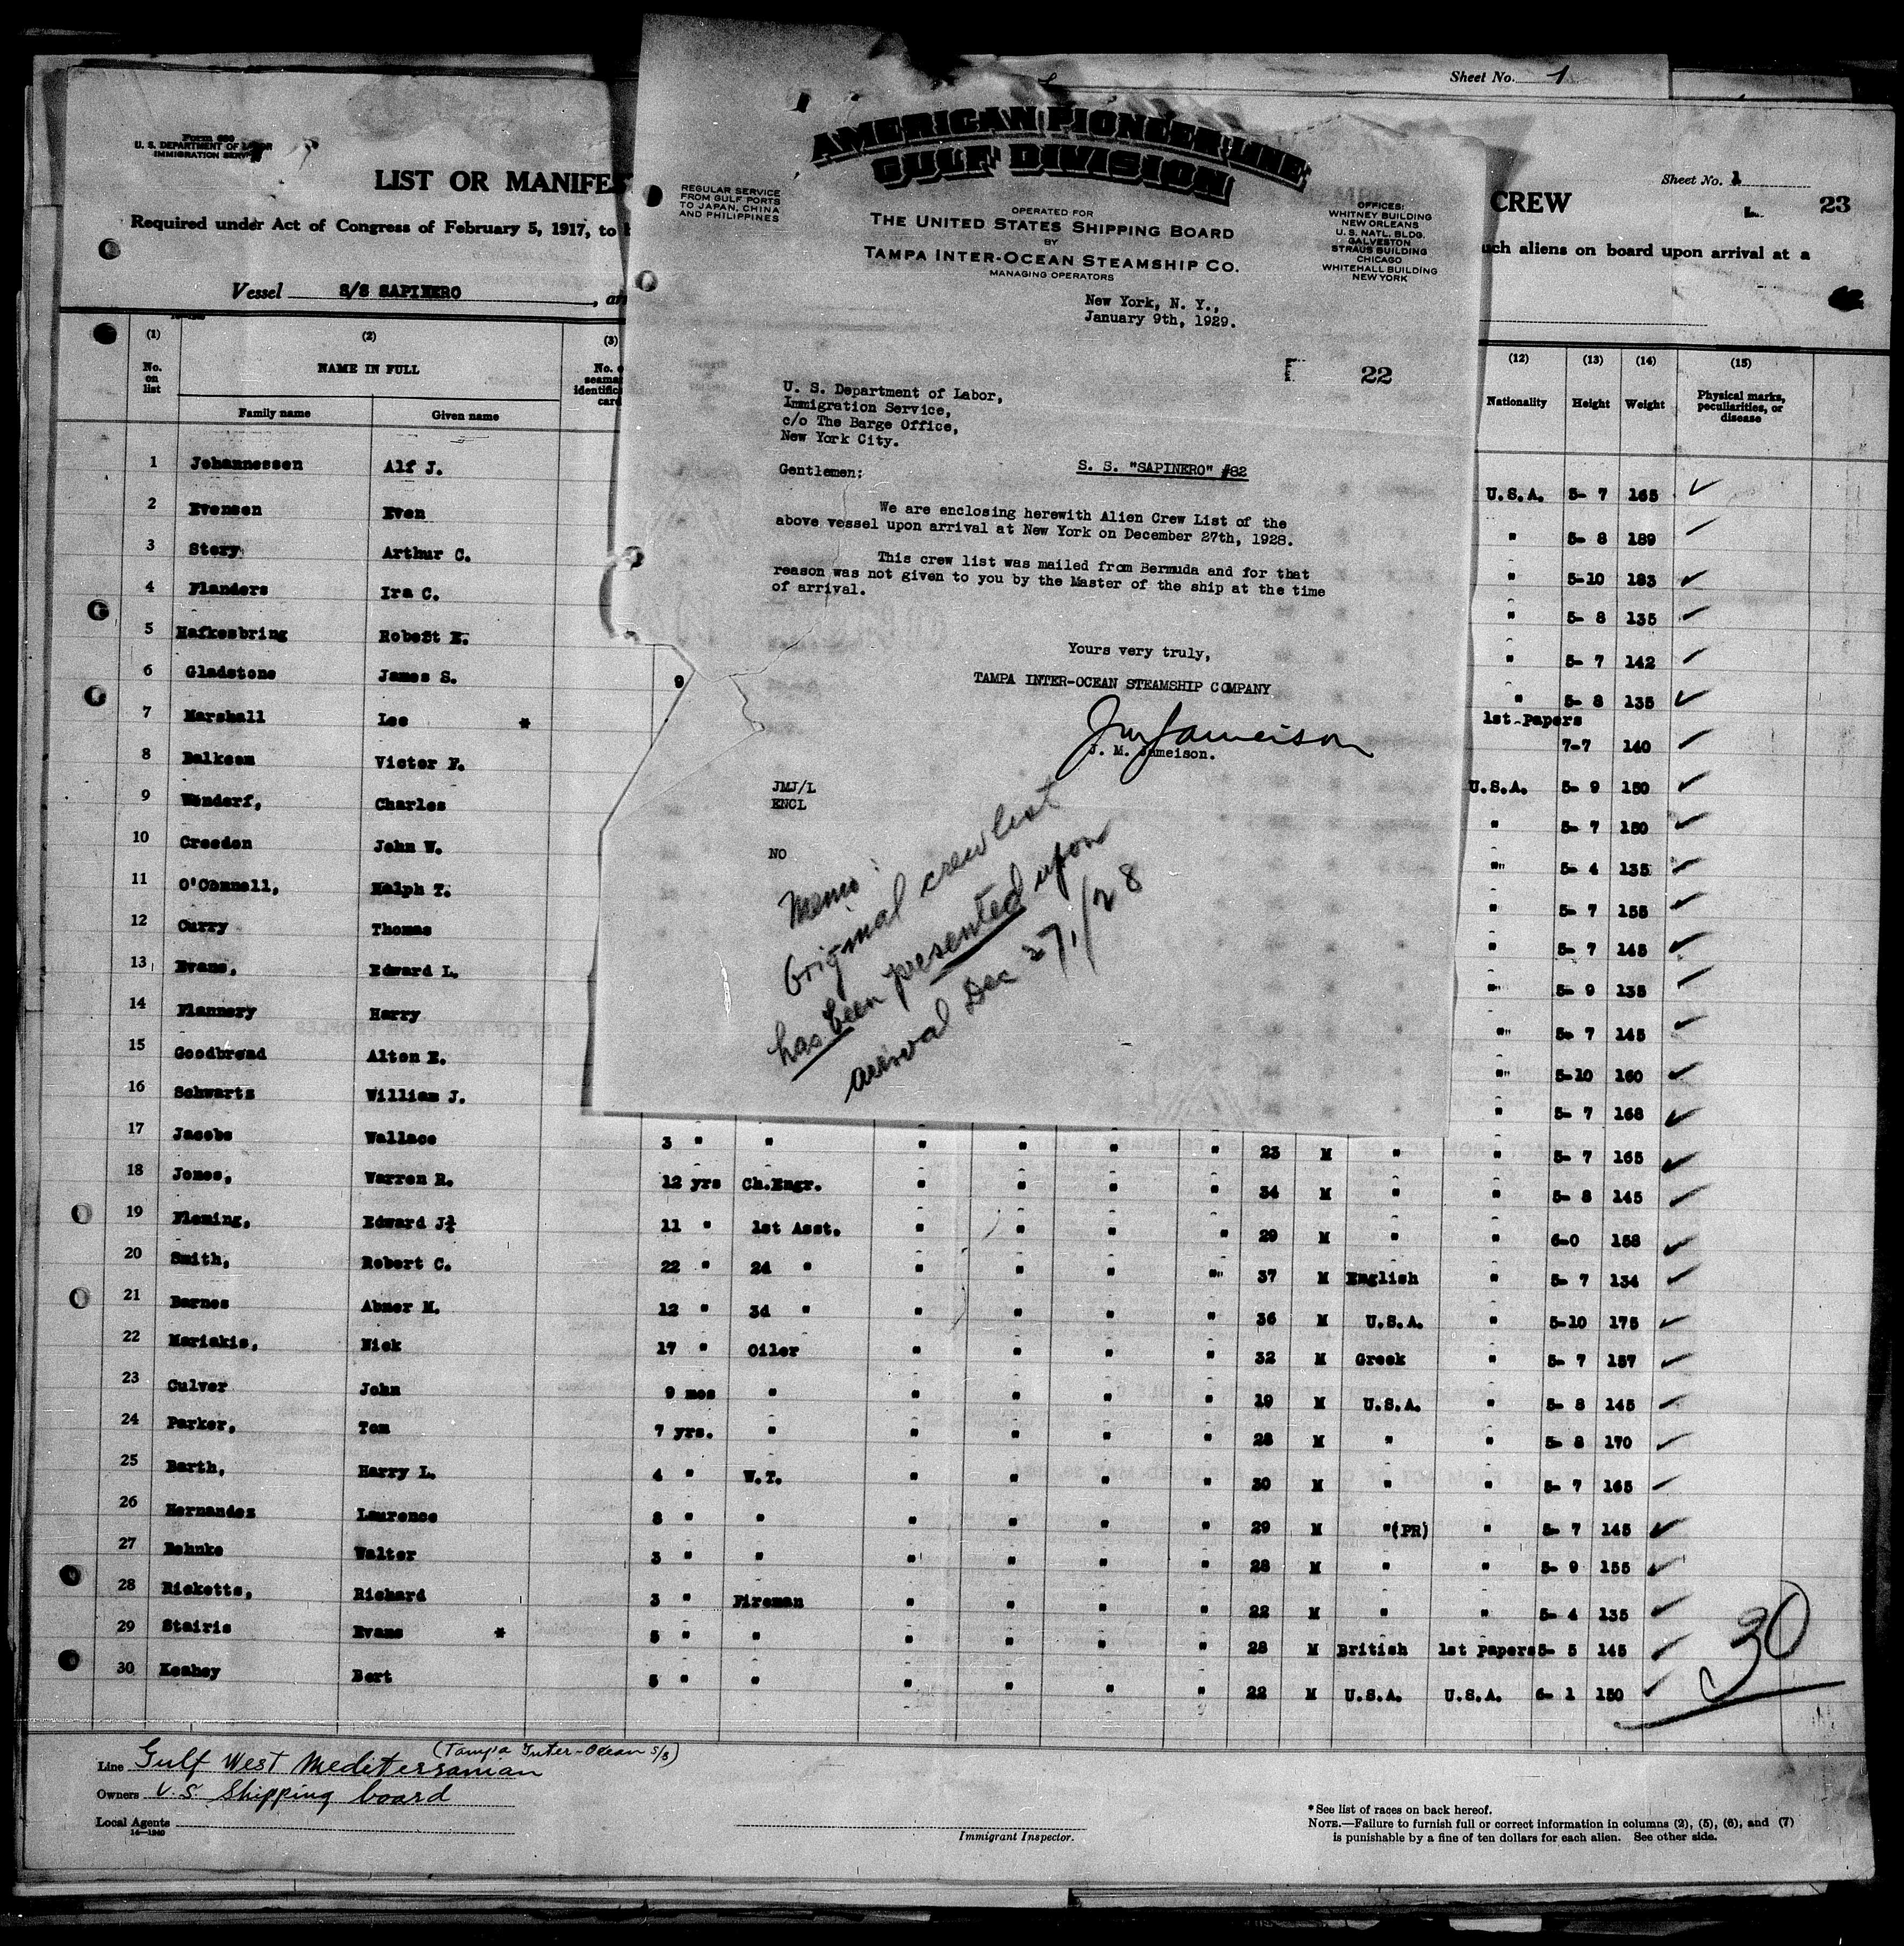 Sheet No. 1
Form 680
U. S. DEPARTMENT OF LABOR
IMMIGRATION SERVICE
LIST OR MANIFES
Required under Act of Congress of February 5, 1917, to
Vessel S/S SAPINERO, an
CREW
Sheet No. 1
23
uch aliens on board upon arrival at a
AMERICAN PIONEER LINE
GULF DIVISION
REGULAR SERVICE
FROM GULF PORTS
TO JAPAN, CHINA
AND PHILIPPINES
OPERATED FOR
THE UNITED STATES SHIPPING BOARD
BY
TAMPA INTER-OCEAN STEAMSHIP CO.
MANAGING OPERATORS
OFFICES:
WHITNEY BUILDING
NEW ORLEANS
U. S. NATL. BLDG.
GALVESTON
STRAUS BUILDING
CHICAGO
WHITEHALL BUILDING
NEW YORK
New York, N. Y.,
January 9th, 1929.
22
U. S. Department of Labor,
Immigration Service,
c/o The Barge Office,
New York City.
Gentlemen: S. S. "SAPINERO" #82
We are enclosing herewith Alien Crew List of the
above vessel upon arrival at New York on December 27th, 1928.
This crew list was mailed from Bermuda and for that
reason was not given to you by the Master of the ship at the time
of arrival.
Yours very truly,
TAMPA INTER-OCEAN STEAMSHIP COMPANY
J M Jameison
J. M. Jameison.
JMJ/L
ENCL
NO
Memo:
Original crew list
has been presented upon
arrival Dec 27,/28
(1) (2) (3) (12) (13) (14) (15)
No. on list NAME IN FULL Nationality Height Weight Physical marks, peculiarities, or disease
Family name Given name
1 Johannessen Alf J. U.S.A. 5- 7 165
2 Evensen Even " 5- 8 189
3 Story Arthur C. " 5-10 183
4 Flanders Ira C. " 5- 8 135
5 Hafkesbring Robert E. " 5- 7 142
6 Gladstone James S. 9 " 5- 8 135
7 Marshall Lee * 1st Papers 7-7 140
8 Balksom Victor F. U.S.A. 5- 9 150
9 Wonderf, Charles " 5- 7 150
10 Creedon John W. " 5- 4 135
11 O'Connell, Ralph T. " 5- 7 155
12 Curry Thomas " 5- 7 145
13 Evans, Edward L. " 5- 9 135
14 Flannery Harry " 5- 7 145
15 Goodbread Alton E. " 5-10 160
16 Schwartz William J. " 5- 7 168
17 Jacobs Wallace 3 " " " " " " 23 M " " 5- 7 165
18 Jones, Warren R. 12 yrs Ch.Engr. " " " " 34 M " " 5- 8 145
19 Fleming, Edward J. 11 " 1st Asst. " " " " 29 M " " 6-0 158
20 Smith, Robert C. 22 " 2d " " " " " 37 M English " 5- 7 134
21 Barnes Abner M. 12 " 3d " " " " " 36 M U.S.A. " 5-10 175
22 Mariakis, Nick 17 " Oiler " " " " 32 M Greek " 5- 7 157
23 Culver John 9 mos " " " " " 19 M U.S.A. " 5- 8 145
24 Parker, Tom 7 yrs. " " " " " 28 M " " 5- 8 170
25 Barth, Harry L. 4 " W.T. " " " " 30 M " " 5- 7 165
26 Hernandez Laurence 8 " " " " " " 29 M "(PR) " 5- 7 145
27 Behnke Walter 3 " " " " " " 28 M " " 5- 9 155
28 Ricketts, Richard 3 " Fireman " " " " 22 M " " 5- 4 135
29 Stairis Evans * 5 " " " " " " 28 M British 1st Papers 5- 5 145
30 Keahey Bert 5 " " " " " " 22 M U.S.A. U.S.A. 6- 1 150
30
Line Gulf West Mediterranian (Tampa Inter-Ocean S/S)
Owners U.S. Shipping board
Local Agents
14-1240
Immigrant Inspector.
* See list of races on back hereof.
NOTE.—Failure to furnish full or correct information in columns (2), (5), (6), and (7)
is punishable by a fine of ten dollars for each alien. See other side.